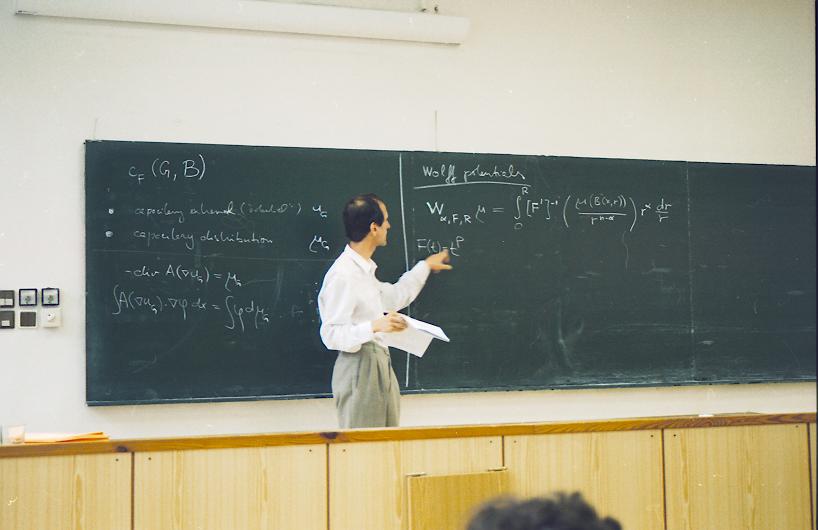 c_F (G, B)
capacitary
u_G
capacitary distribution μ_G
-div A(∇u_G) = μ_G
∫A(∇u_G)·∇φ dx = ∫φ dμ_G
Wolff potentials
W_{α,F,R} μ = ∫_0^R [F']^{-1} ( μ(B(x,r)) / r^{n-α} ) r^α dr/r
F(t) = t^p